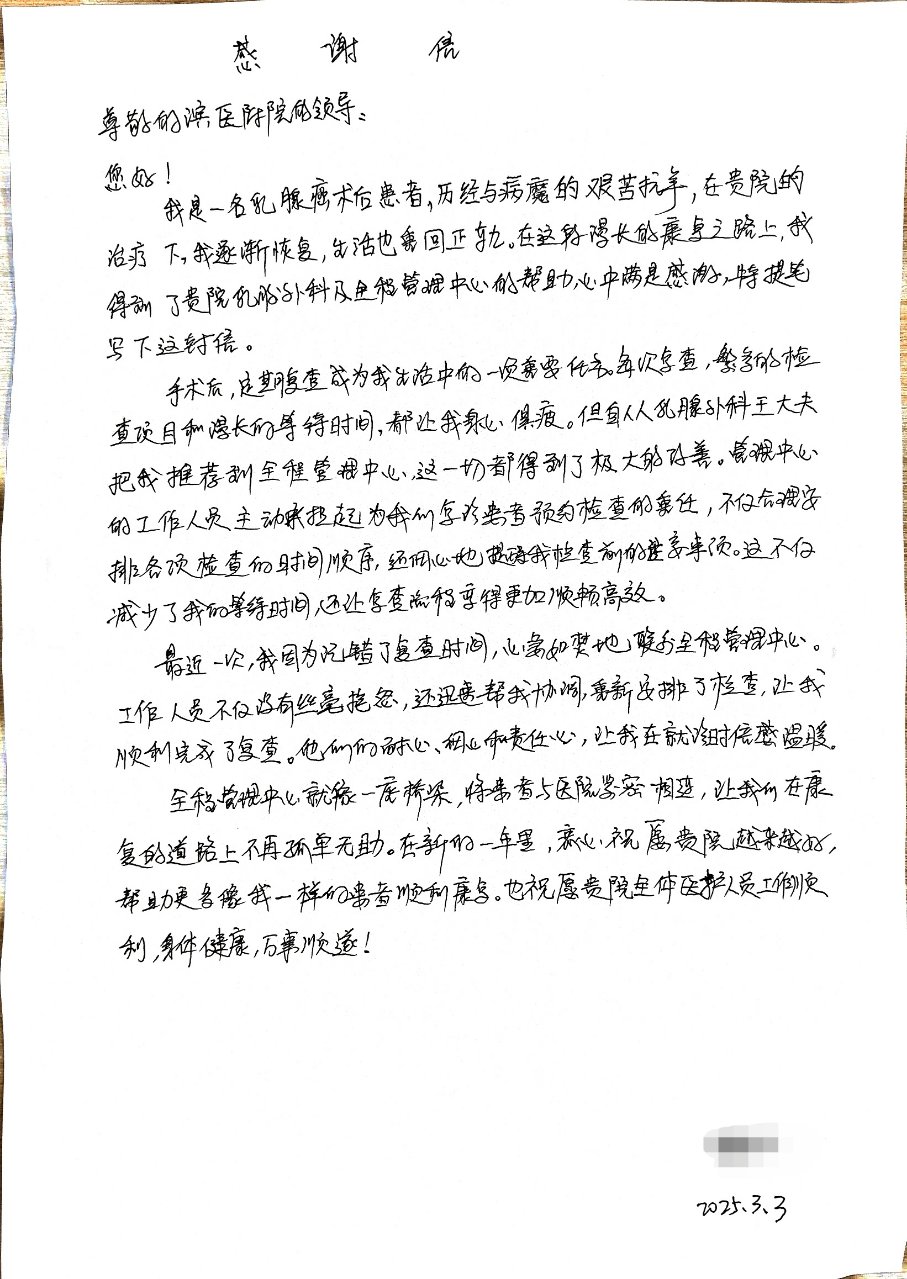 感 谢 信
尊敬的滨医附院的领导：
您好！
我是一名乳腺癌术后患者，历经与病魔的艰苦抗争，在贵院的
治疗下，我逐渐恢复，生活也重回正轨。在这段漫长的康复之路上，我
得到了贵院乳腺外科及全程管理中心的帮助，心中满是感激，特提笔
写下这封信。
手术后，定期复查成为我生活中的一项重要任务。每次复查，繁多的检
查项目和漫长的等待时间，都让我身心俱疲。但自从乳腺外科王大夫
把我推荐到全程管理中心，这一切都得到了极大的改善。管理中心
的工作人员主动承担起为我们复诊患者预约检查的责任，不仅合理安
排各项检查的时间顺序，还细心地提醒我检查前的注意事项。这不仅
减少了我的等待时间，还让复查流程变得更加顺畅高效。
最近一次，我因为记错了复查时间，心急如焚地联系全程管理中心。
工作人员不仅没有丝毫抱怨，还迅速帮我协调，重新安排了检查，让我
顺利完成了复查。他们的耐心、细心和责任心，让我在就诊时倍感温暖。
全程管理中心就像一座桥梁，将患者与医院紧密相连，让我们在康
复的道路上不再孤单无助。在新的一年里，衷心祝愿贵院越来越好，
帮助更多像我一样的患者顺利康复。也祝愿贵院全体医护人员工作顺
利，身体健康，万事顺遂！
2025.3.3